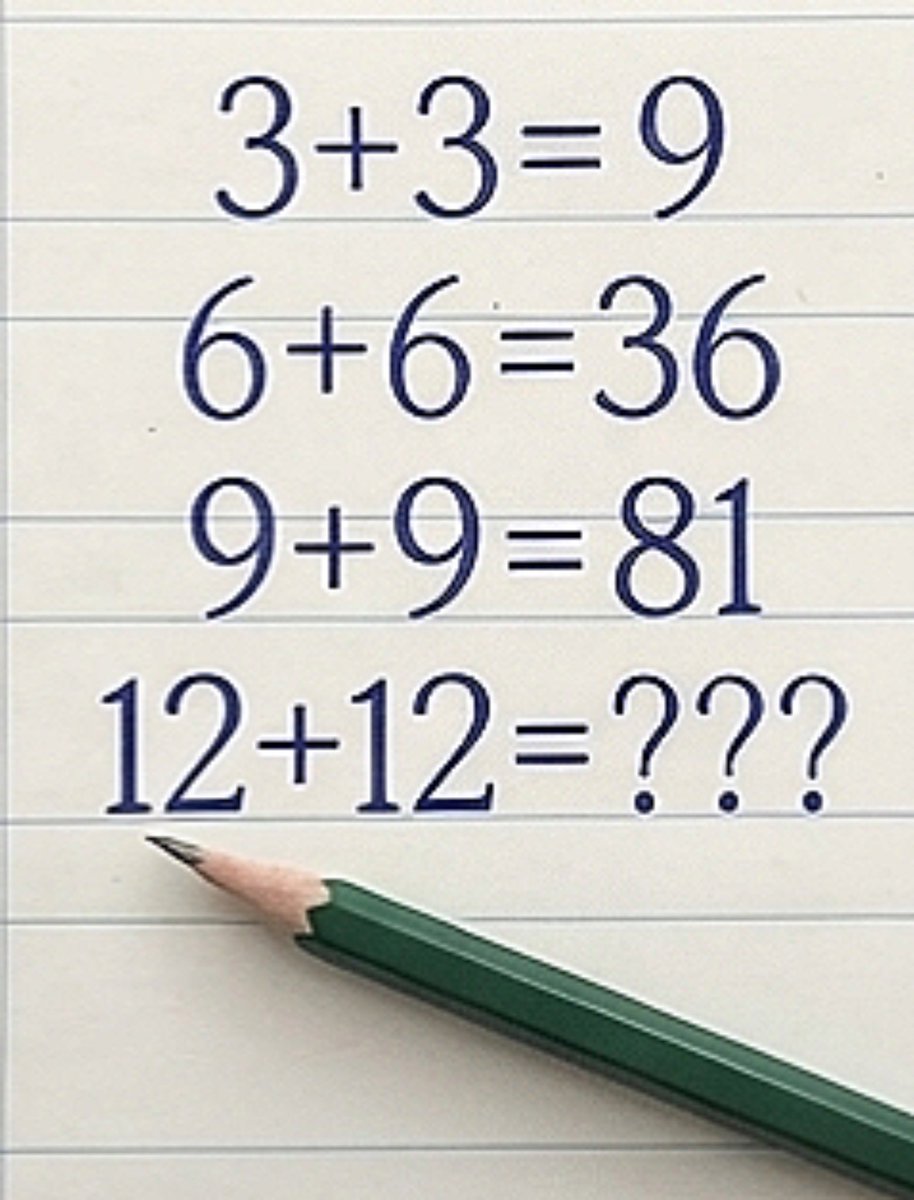 3+3=9
6+6=36
9+9=81
12+12=???